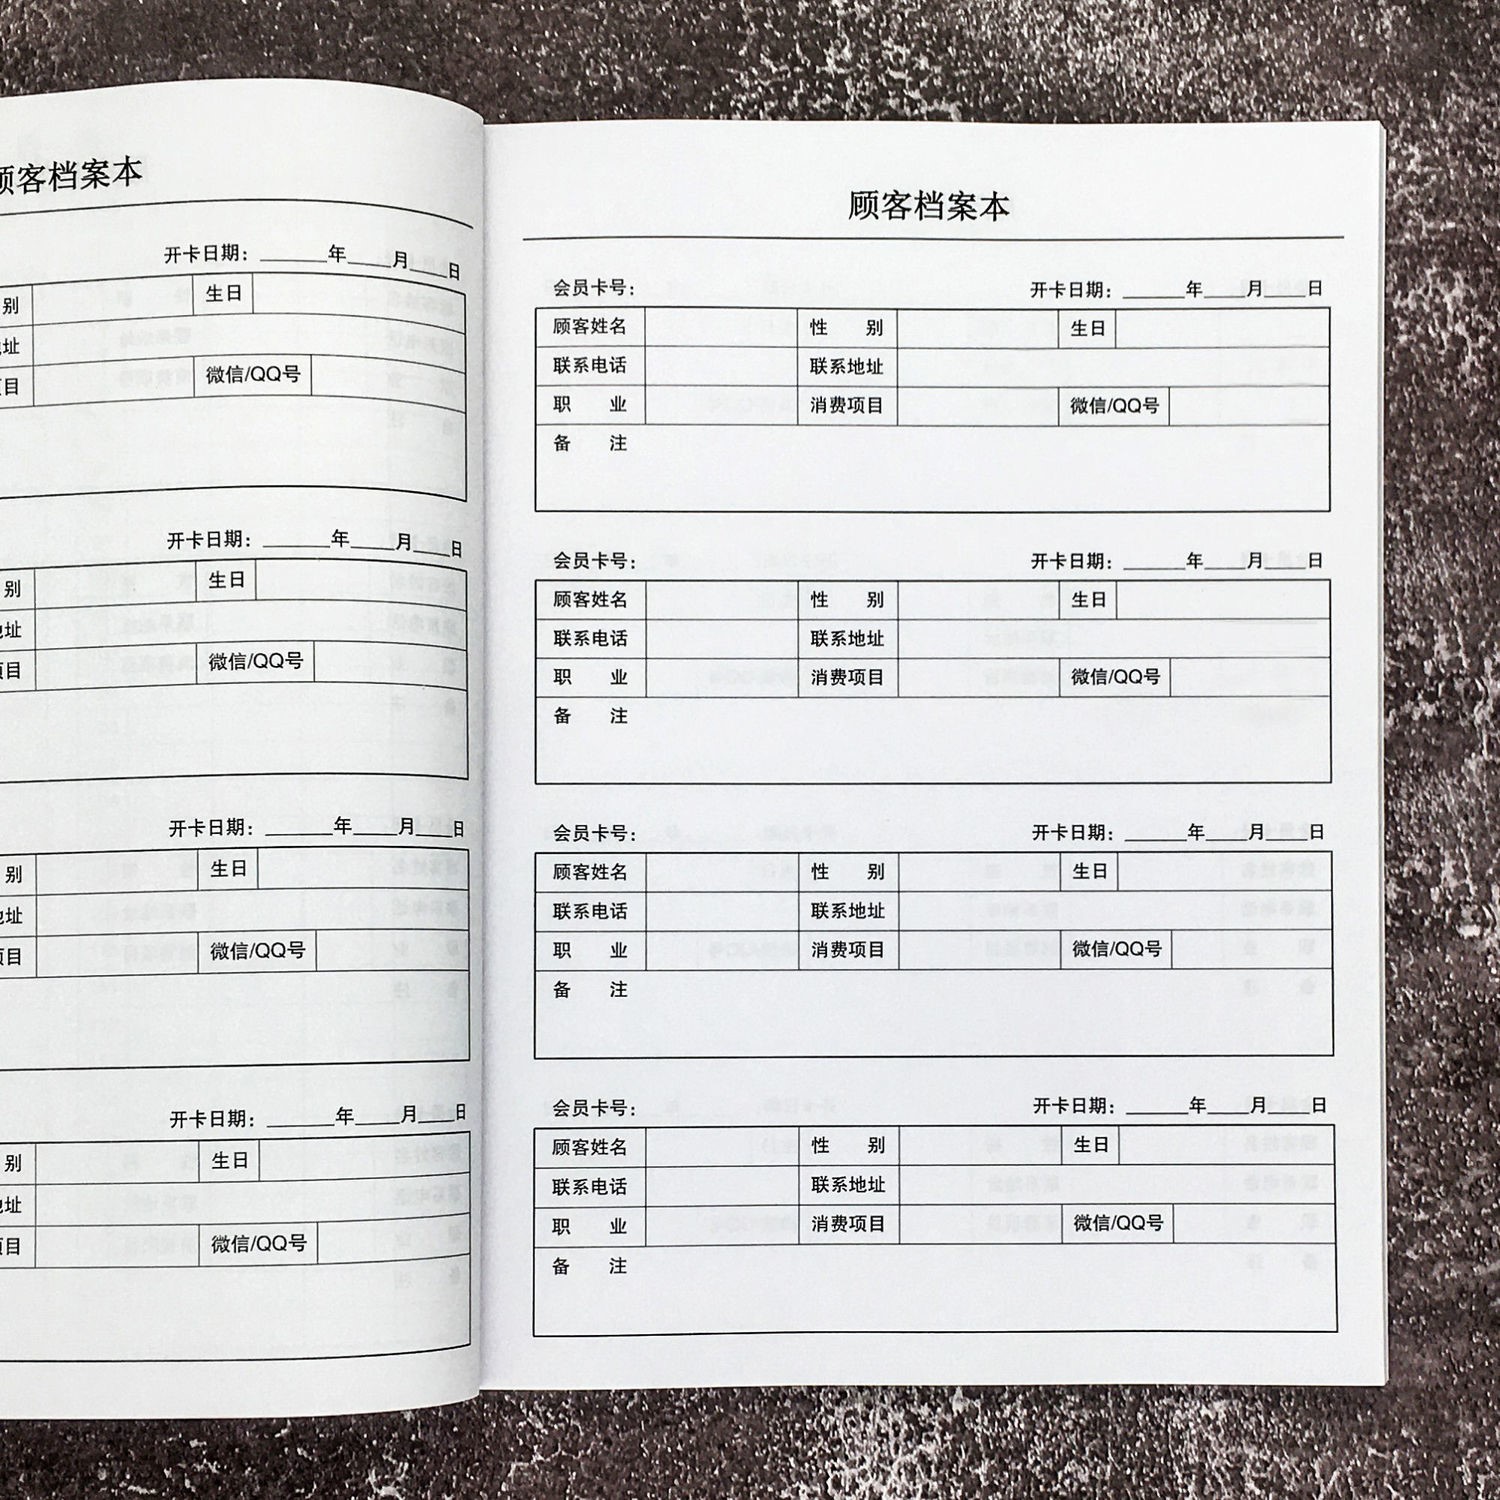 顾客档案本
开卡日期：______年____月____日
别 生日
址
项目 微信/QQ号
开卡日期：______年____月____日
别 生日
址
项目 微信/QQ号
开卡日期：______年____月____日
别 生日
地址
项目 微信/QQ号
开卡日期：______年____月____日
别 生日
地址
项目 微信/QQ号
顾客档案本
会员卡号： 开卡日期：______年____月____日
顾客姓名 性 别 生日
联系电话 联系地址
职 业 消费项目 微信/QQ号
备 注
会员卡号： 开卡日期：______年____月____日
顾客姓名 性 别 生日
联系电话 联系地址
职 业 消费项目 微信/QQ号
备 注
会员卡号： 开卡日期：______年____月____日
顾客姓名 性 别 生日
联系电话 联系地址
职 业 消费项目 微信/QQ号
备 注
会员卡号： 开卡日期：______年____月____日
顾客姓名 性 别 生日
联系电话 联系地址
职 业 消费项目 微信/QQ号
备 注